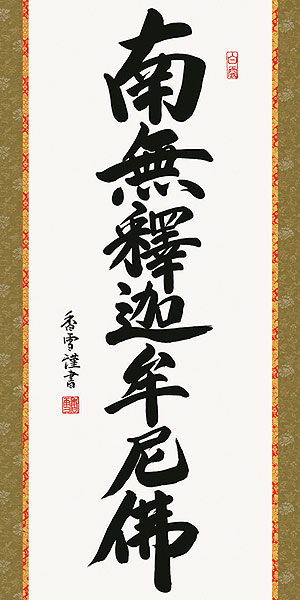 南無釋迦牟尼佛
香雪謹書